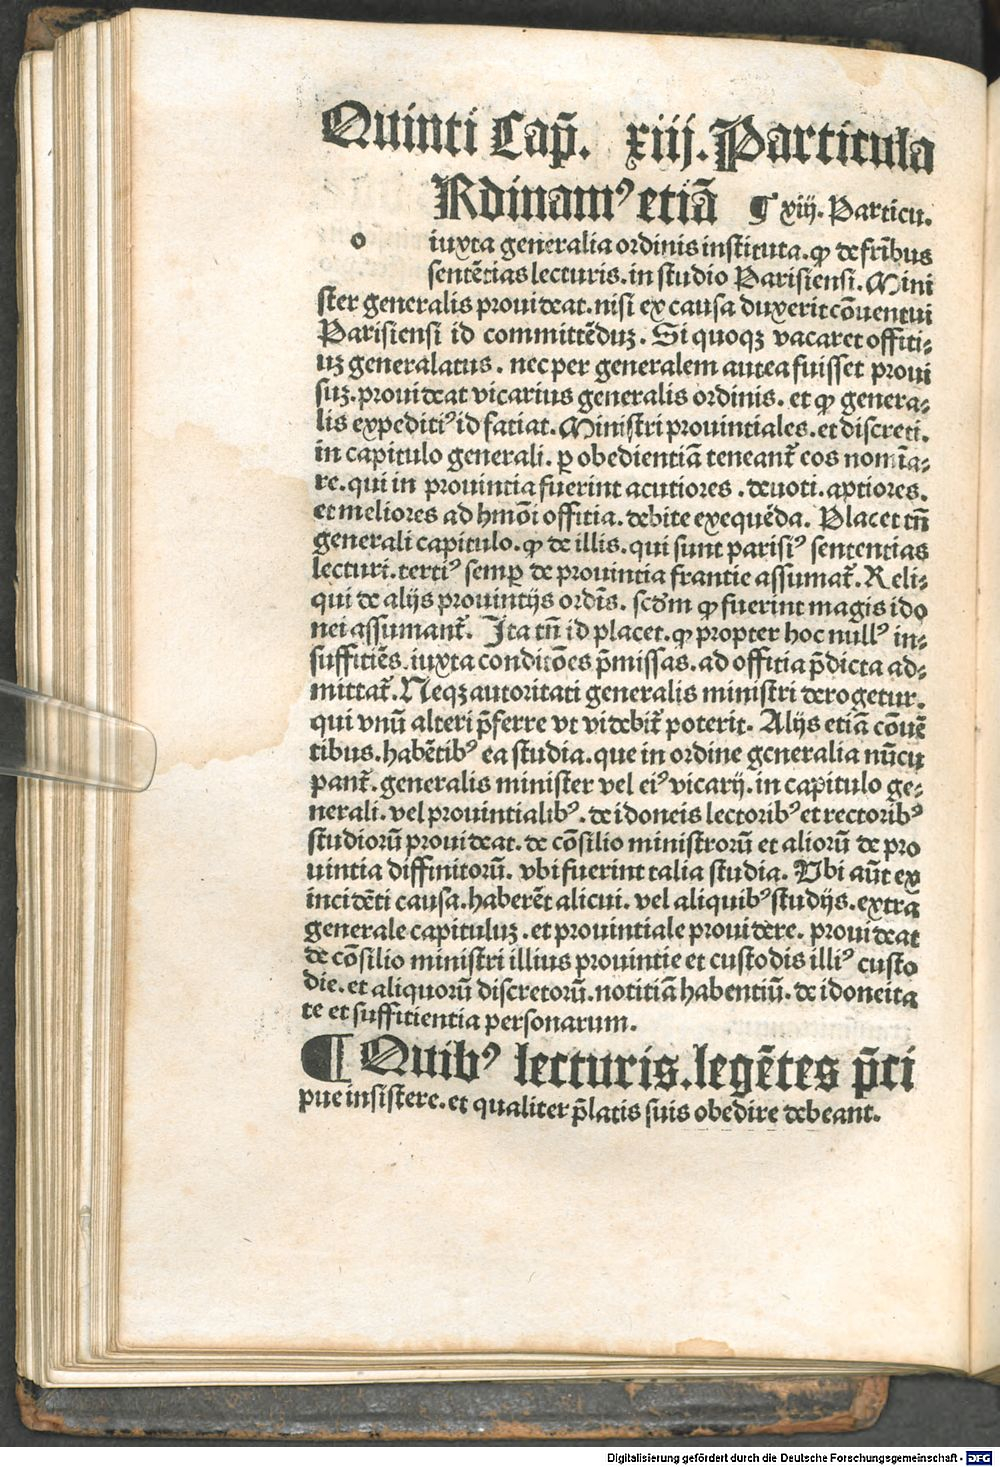 Quinti Cap̄. xiij. Particula
Rdinamꝰ etiā ¶ xiij. Particu.
o iuxta generalia ordinis instituta. ꝙ de fr̄ibus
sentētias lecturis. in studio Parisiensi. Mini
ster generalis prouideat. nisi ex causa duxerit cōuentui
Parisiensi id committēduꝫ. Si quoqꝫ vacaret offiti⸗
uꝫ generalatus. nec per generalem antea fuisset proui
suꝫ. prouideat vicarius generalis ordinis. et ꝙ genera⸗
lis expeditiꝰ id fatiat. Ministri prouintiales. et discreti.
in capitulo generali. ꝑ obedientiā teneant᷑ eos nomīa⸗
re. qui in prouintia fuerint acutiores. deuoti. aptiores.
et meliores ad hmōi offitia. debite exequēda. Placet tn̄
generali capitulo. ꝙ de illis. qui sunt parisiꝰ sententias
lecturi. tertiꝰ semꝑ de prouintia frantie assumat᷑. Reli⸗
qui de alijs prouintijs ordīs. scđm ꝙ fuerint magis ido
nei assumant᷑. Ita tn̄ id placet. ꝙ propter hoc nullꝰ in⸗
suffitiēs. iuxta conditōes p̄missas. ad offitia p̄dicta ad⸗
mittat᷑. Neqꝫ autoritati generalis ministri derogetur.
qui vnū alteri p̄ferre vt videbit᷑ poterit. Alijs etiā cōuē
tibus. habētibꝰ ea studia. que in ordine generalia nūcu
pant᷑. generalis minister vel eiꝰ vicarij. in capitulo ge⸗
nerali. vel prouintialibꝰ. de idoneis lectoribꝰ et rectoribꝰ
studiorū prouideat. de cōsilio ministrorū et aliorū de pro
uintia diffinitorū. vbi fuerint talia studia. Vbi aūt ex
incidēti causa. haberēt alicui. vel aliquibꝰ studijs. extra
generale capituluꝫ. et prouintiale prouidere. prouideat
de cōsilio ministri illius prouintie et custodis illiꝰ custo
die. et aliquorū discretorū. notitiā habentiū. de idoneita
te et suffitientia personarum.
¶ Quibꝰ lecturis. legētes p̄ci
pue insistere. et qualiter p̄latis suis obedire debeant.
Digitalisierung gefördert durch die Deutsche Forschungsgemeinschaft - DFG